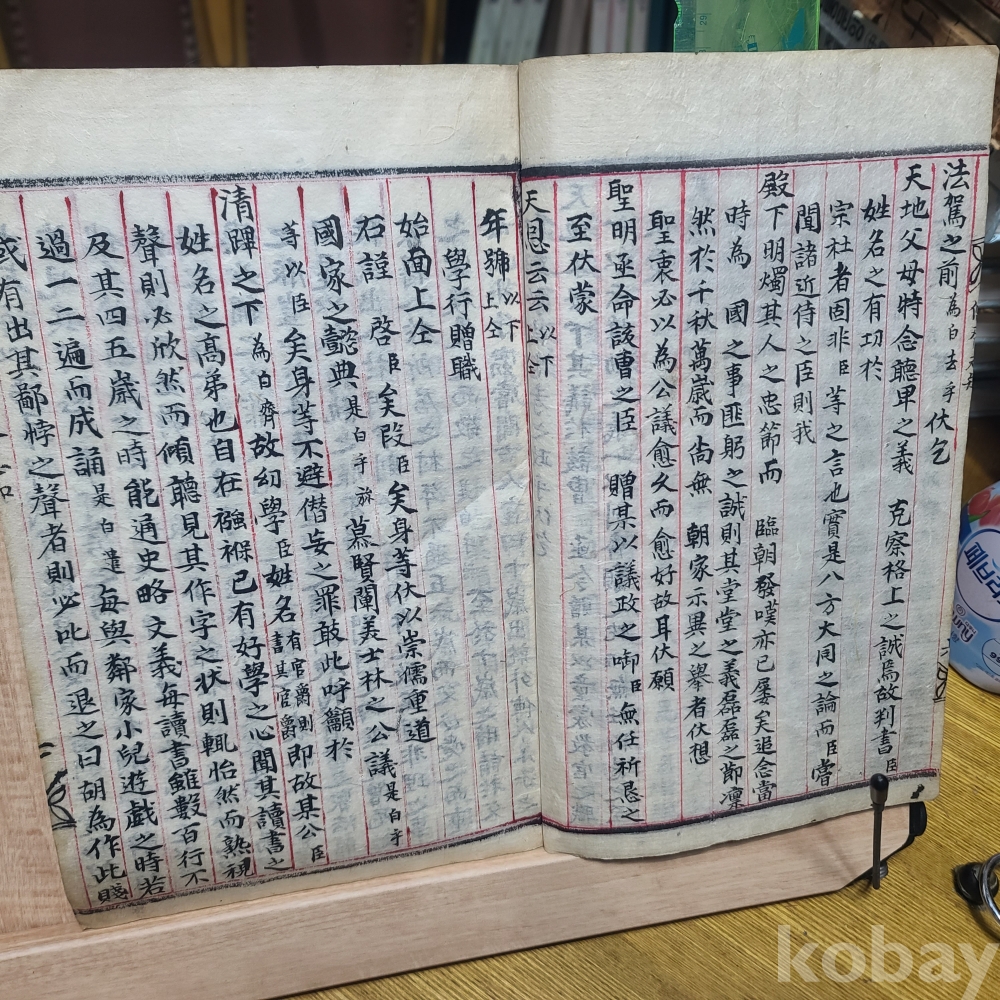 法駕之前 為白去乎 伏乞
天地父母時念聽卑之義 克察格上之誠焉故判書臣
姓名之有功於
宗社者固非臣等之言也實是八方大同之論而臣嘗
聞諸近侍之臣則我
殿下明燭其人之忠節而 臨朝發嘆亦已屢矣追念當
時為 國之事匪躬之誠則其堂堂之義磊磊之節凜
然於千秋萬歲而尚無 朝家示異之擧者伏想
聖衷必以為公議愈久而愈好故耳伏願
聖明亟命該曹之臣 贈某以議政之啣臣無任祈恳之
至伏蒙
天恩云云 以下上仝
年號 以下上仝
學行贈職
始面上仝
石謹 啓臣矣段臣矣身等伏以崇儒重道
國家之懿典是白乎旀慕賢闡美士林之公議是白乎
等以臣矣身等不避僭妄之罪敢此呼籲於
淸蹕之下為白齊故幼學臣姓名 有官爵則書其官爵 即故某公臣
姓名之高弟也自在襁褓已有好學之心聞其讀書之
聲則必欣然而傾聽見其作字之狀則輒怡然而熟視
及其四五歲之時能通史略文義每讀書雖數百行不
過一二遍而成誦是白遣每與鄰家小兒遊戲之時若
或有出其鄙悖之聲者則必叱而退之曰胡為作此賤
페브리즈
kobay